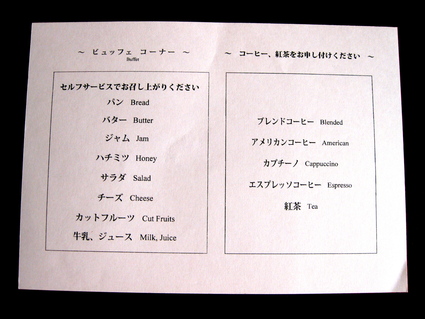 ～ ビュッフェ コーナー ～
Buffet
セルフサービスでお召し上がりください
パン Bread
バター Butter
ジャム Jam
ハチミツ Honey
サラダ Salad
チーズ Cheese
カットフルーツ Cut Fruits
牛乳、ジュース Milk, Juice
～ コーヒー、紅茶をお申し付けください ～
ブレンドコーヒー Blended
アメリカンコーヒー American
カプチーノ Cappuccino
エスプレッソコーヒー Espresso
紅茶 Tea